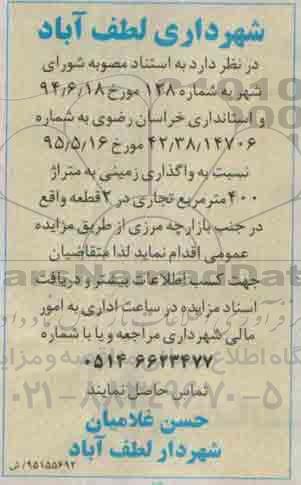 شهرداری لطف آباد
در نظر دارد به استناد مصوبه شورای
شهر به شماره ۱۳۸ مورخ ۹۴/۶/۱۸
و استانداری خراسان رضوی به شماره
۴۲/۳۸/۱۴۷۰۶ مورخ ۹۵/۵/۱۶
نسبت به واگذاری زمینی به متراژ
۴۰۰ مترمربع تجاری در ۲ قطعه واقع
در جنب بازارچه مرزی از طریق مزایده
عمومی اقدام نماید لذا متقاضیان
جهت کسب اطلاعات بیشتر و دریافت
اسناد مزایده در ساعت اداری به امور
مالی شهرداری مراجعه و یا با شماره
۰۵۱۴ ۶۶۲۳۴۷۷
تماس حاصل نمایند
حسن غلامیان
شهردار لطف آباد
۹۵۱۵۵۶۹۲/ش
۰۲۱-۸۸۳۴۹۶۷۰-۵